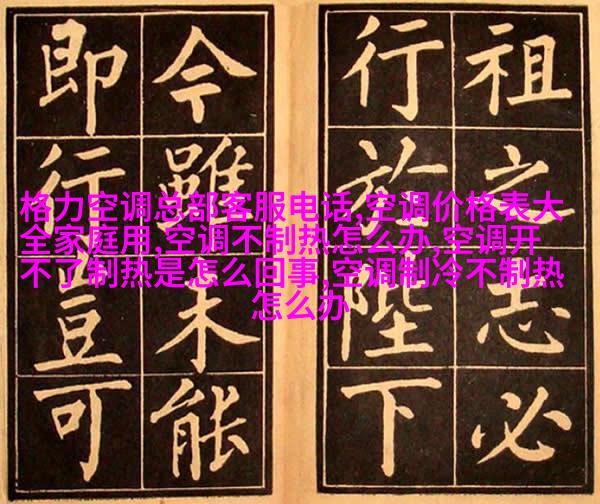 祖之志必
行於陛下
今雖未能
即行豈可
格力空调总部客服电话,空调价格表大
全家庭用,空调不制热怎么办,空调开
不了制热是怎么回事,空调制冷不制热
怎么办